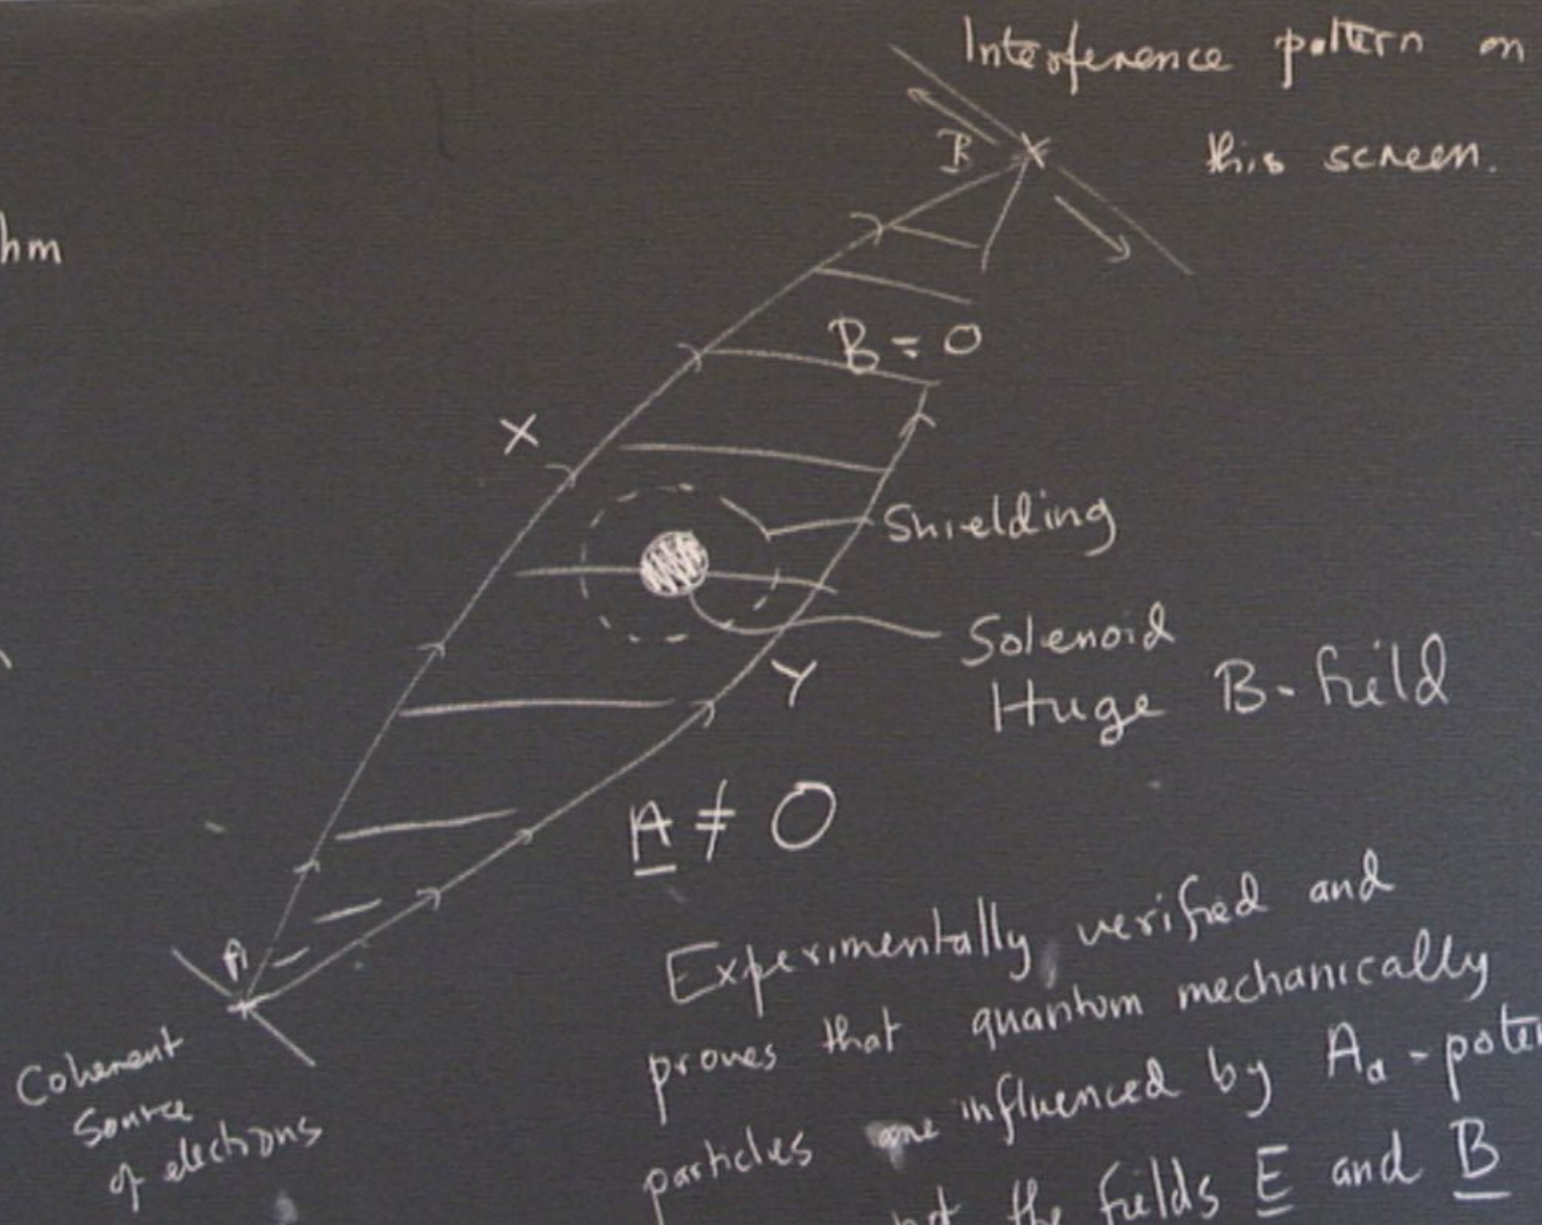 Interference pattern on
this screen.
hm
B
B = 0
X
Shielding
Solenoid
Huge B-field
Y
A ≠ 0
A
Coherent
Source
of electrons
Experimentally verified and
proves that quantum mechanically
particles are influenced by Aa - poten
not the fields E and B